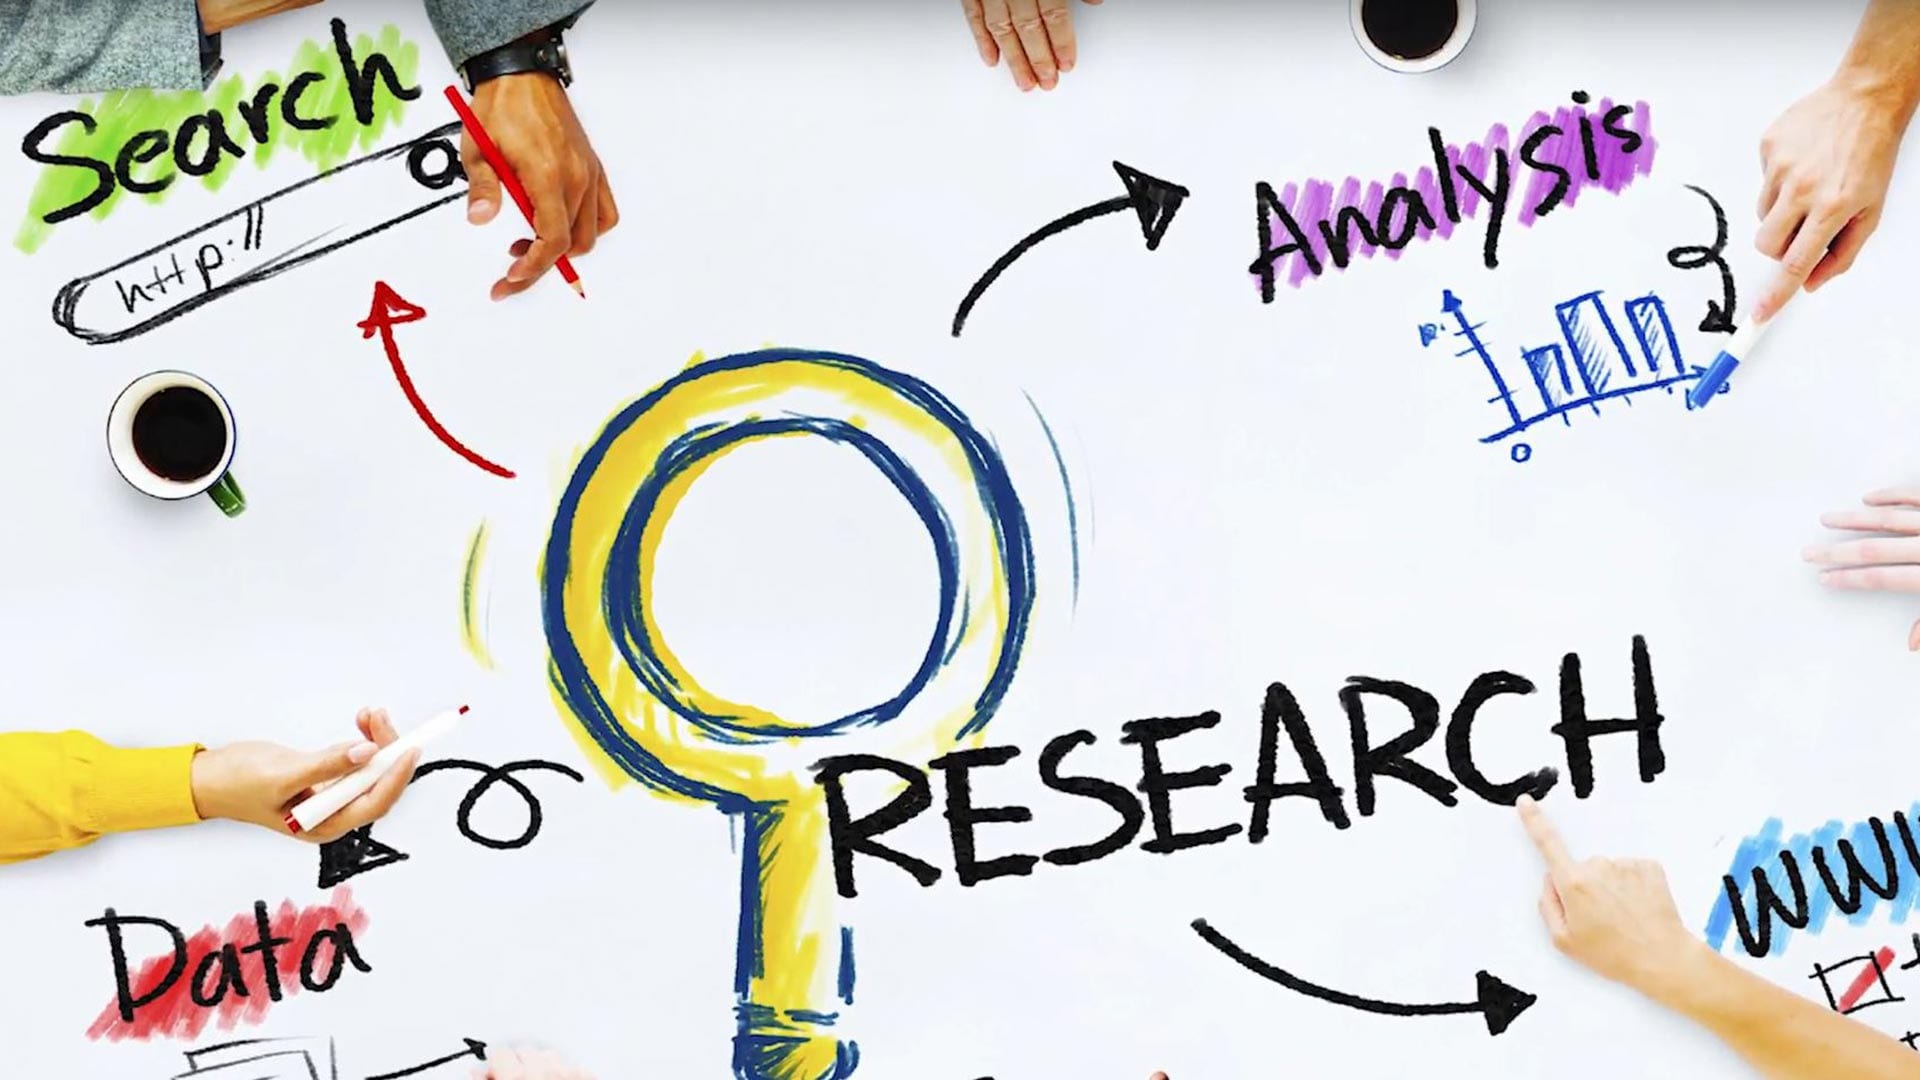 Search
http://
Analysis
0
RESEARCH
Data